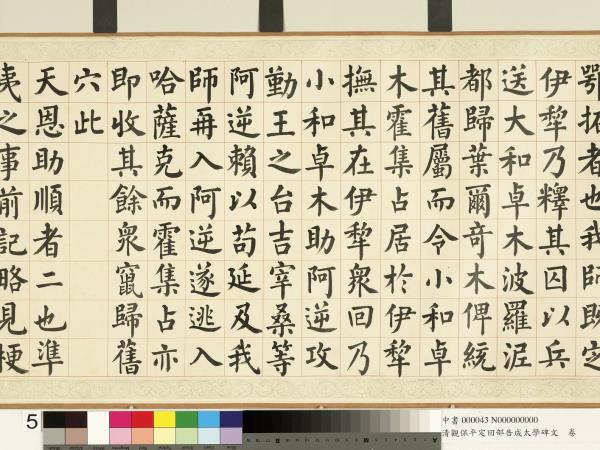 鄂拓者也我師既定
伊犂乃釋其囚以兵
送大和卓木波羅泥
都歸葉爾奇木俾統
其舊屬而令小和卓
木霍集占居於伊犂
撫其在伊犂衆回乃
小和卓木助阿逆攻
勤王之台吉宰桑等
阿逆賴以苟延及我
師再入阿逆遂逃入
哈薩克而霍集占亦
即收其餘衆竄歸舊
穴此
天恩助順者二也準
夷之事前記略見梗
5
中書 000043 N000000000
清觀保平定回部告成太學碑文 卷